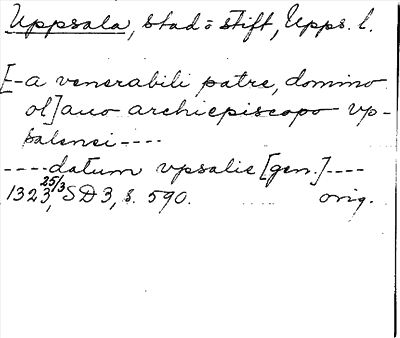 Uppsala, stad o stift, Upps. l.
[-a venerabili patre, domino
ol]auo archiepiscopo vp-
salensi ----
----datum vpsalie [gen.]----
1323 25/3, SD 3, s. 590. orig.